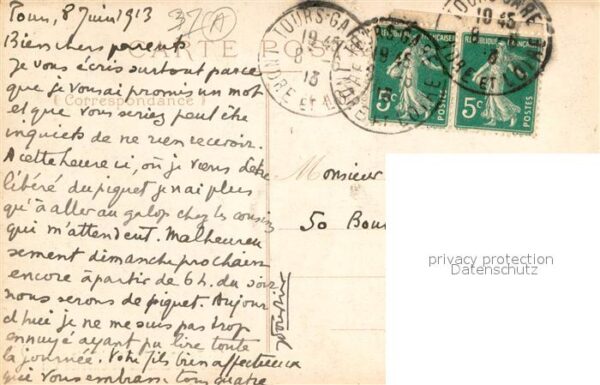 Tours, 8 Juin 1913
37 A
Bien chers parents
CARTE POSTALE
Je vous écris surtout parce
que je vous ai promis un mot
(Correspondance)
et que vous seriez peut être
inquiets de ne rien recevoir.
A cette heure ci, où je viens d'être
libéré du piquet je n'ai plus
qu'à aller au galop chez les cousins
qui m'attendent. Malheureu
sement dimanche prochain
encore à partir de 6h. du soir
nous serons de piquet. Aujour
d'hui je ne me suis pas trop
ennuyé ayant pu lire toute
la journée. Votre fils bien affectueux
qui vous embrasse tous quatre
TOURS-GARE
19 45
8
13
INDRE ET LOIRE
TOURS-GARE
19 45
INDRE ET LOIRE
RÉPUBLIQUE FRANÇAISE
5c
POSTES
RÉPUBLIQUE FRANÇAISE
5c
POSTES
Monsieur
50 Bou
privacy protection
Datenschutz